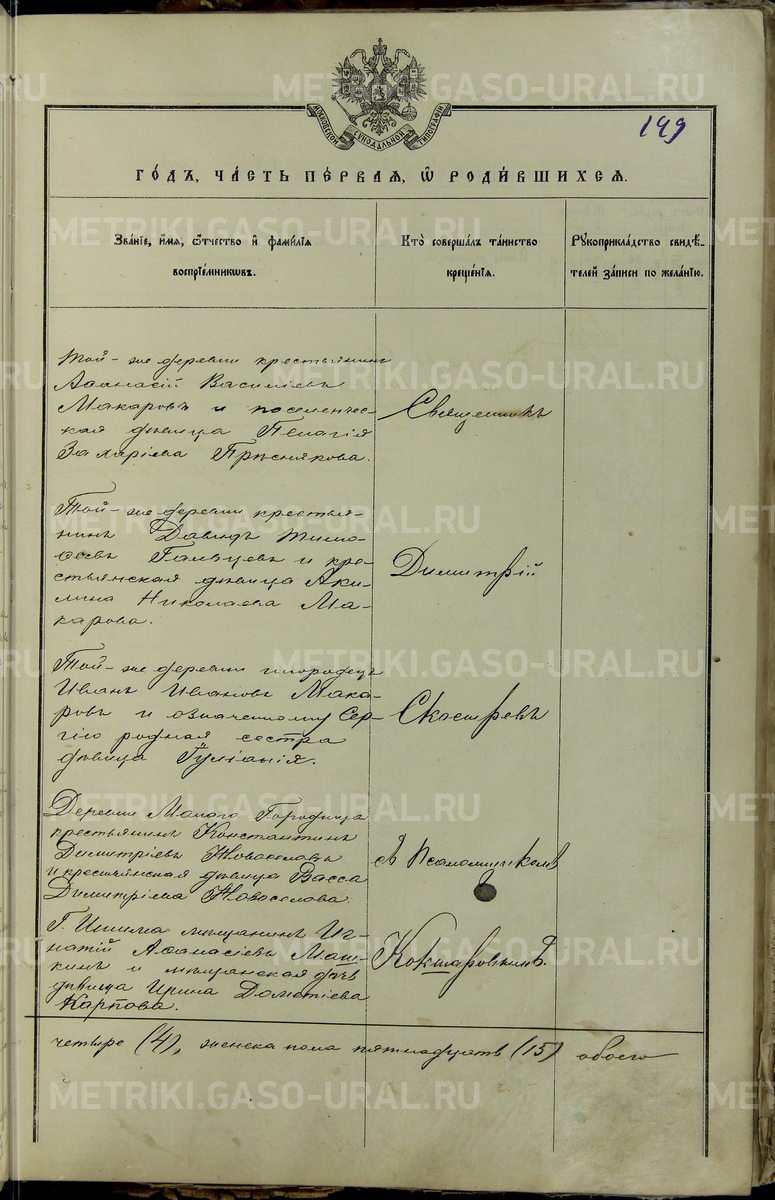 МОСКОВСКОЙ СѴНОДАЛЬНОЙ ТИПОГРАФІИ
149
ГО́ДЪ, ЧА́СТЬ ПЕ́РВАЯ, Ѡ҆ РОДИ́ВШИХСЯ.
Зва́нїе, и҆́мя, ѻ҆́тчество и҆ фами́лїѧ
воспрїе́мниковъ.
Кто̀ соверша́лъ та́инство
креще́нїѧ.
Рꙋкоприкла́дство свидѣ́-
телей за́писи по жела́нїю.
Той-же деревни крестьянинъ
Аѳанасій Василіевъ
Макаровъ и поселенче-
ская дѣвица Пелагія
Захаріева Прѣснякова.
Священникъ
Той-же деревни крестья-
нинъ Давидъ Тимо-
ѳеевъ Гальцевъ и кре-
стьянская дѣвица Аки-
лина Николаева Ма-
карова.
Димитрій
Той-же деревни инородецъ
Иванъ Ивановъ Мака-
ровъ и означенному Сер-
гію родная сестра
дѣвица Іуліанія.
Скосыревъ
Деревни Малаго Городища
крестьянинъ Константинъ
Димитріевъ Новоселовъ
и крестьянская дѣвица Васса
Димитріева Новоселова.
съ Псаломщикомъ
Г. Ишима мѣщанинъ Иг-
натій Аѳанасіевъ Маш-
кинъ и мѣщанская
дѣвица Ирина Дометіева
Карпова.
Кокшаровымъ.
четыре (4), женска пола пятнадцать (15) обоего
METRIKI.GASO-URAL.RU